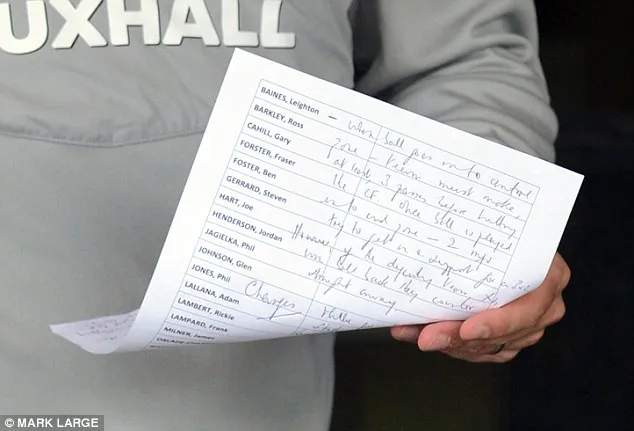 UXHALL
BAINES, Leighton
BARKLEY, Ross
CAHILL, Gary
FORSTER, Fraser
FOSTER, Ben
GERRARD, Steven
HART, Joe
HENDERSON, Jordan
JAGIELKA, Phil
JOHNSON, Glen
JONES, Phil
LALLANA, Adam
LAMBERT, Rickie
LAMPARD, Frank
MILNER, James
– When ball goes into central
zone – team must make
at least 3 passes before
the CF. Once ball is played
into end zone – 2 mys
try to get in a support for a
However if the defending team
win ball back they can
straight away
Changes
© MARK LARGE